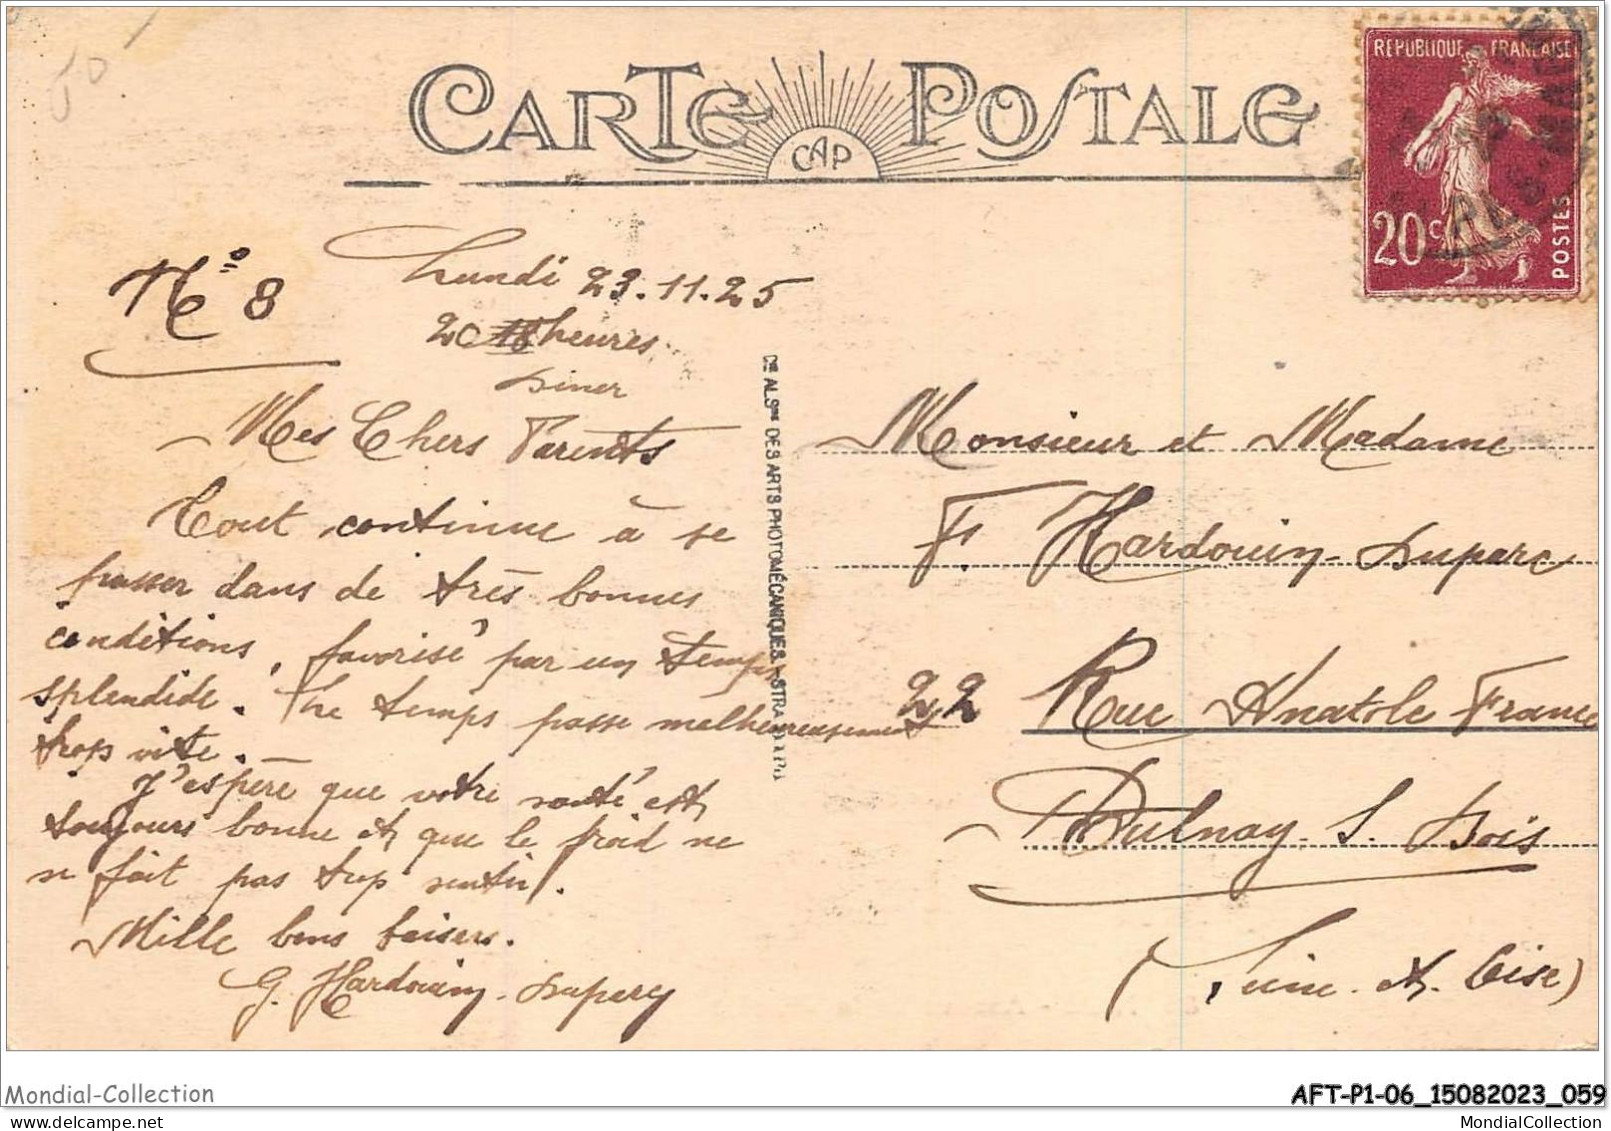 50
CARTE POSTALE
CAP
RÉPUBLIQUE FRANÇAISE
20c
POSTES
N° 8
Lundi 23.11.25
20 heures
Diner
Mes Chers Parents
Tout continue à se
passer dans de très bonnes
conditions, favorisé par un temps
splendide. Le temps passe malheureusement
trop vite.
J'espère que votre santé est
toujours bonne et que le froid ne
se fait pas trop sentir.
Mille bons baisers.
G. Hardouin-Duparc
Cie ALSne DES ARTS PHOTOMÉCANIQUES. - STRA
Monsieur et Madame
F. Hardouin-Duparc
22 Rue Anatole France
Aulnay. s. Bois
(Seine et Oise)
Mondial-Collection
AFT-P1-06_15082023_059
MondialCollection